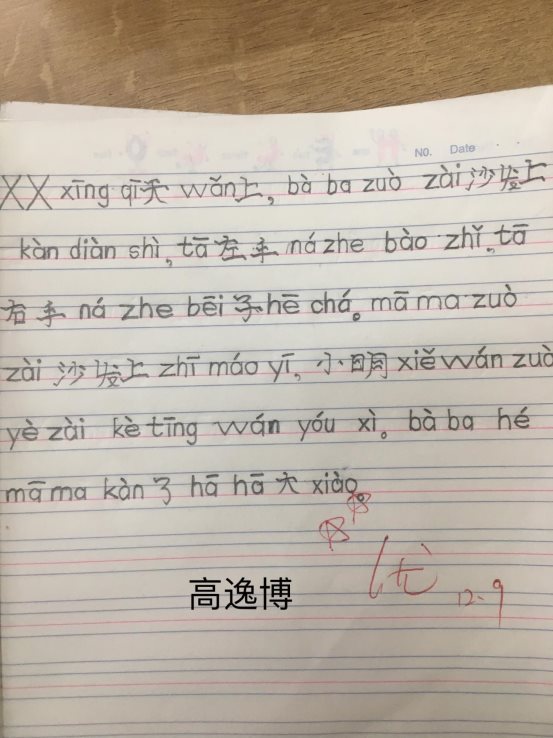 NO. Date
XX xīng qī天 wǎn上, bà ba zuò zài沙发上
kàn diàn shì, tā左手 ná zhe bào zhǐ, tā
右手 ná zhe bēi子 hē chá。mā ma zuò
zài 沙发上 zhī máo yī, 小明 xiě wán zuò
yè zài kè tīng wán yóu xì。bà ba hé
mā ma kàn了 hā hā 大 xiào。
优
12.9
高逸博